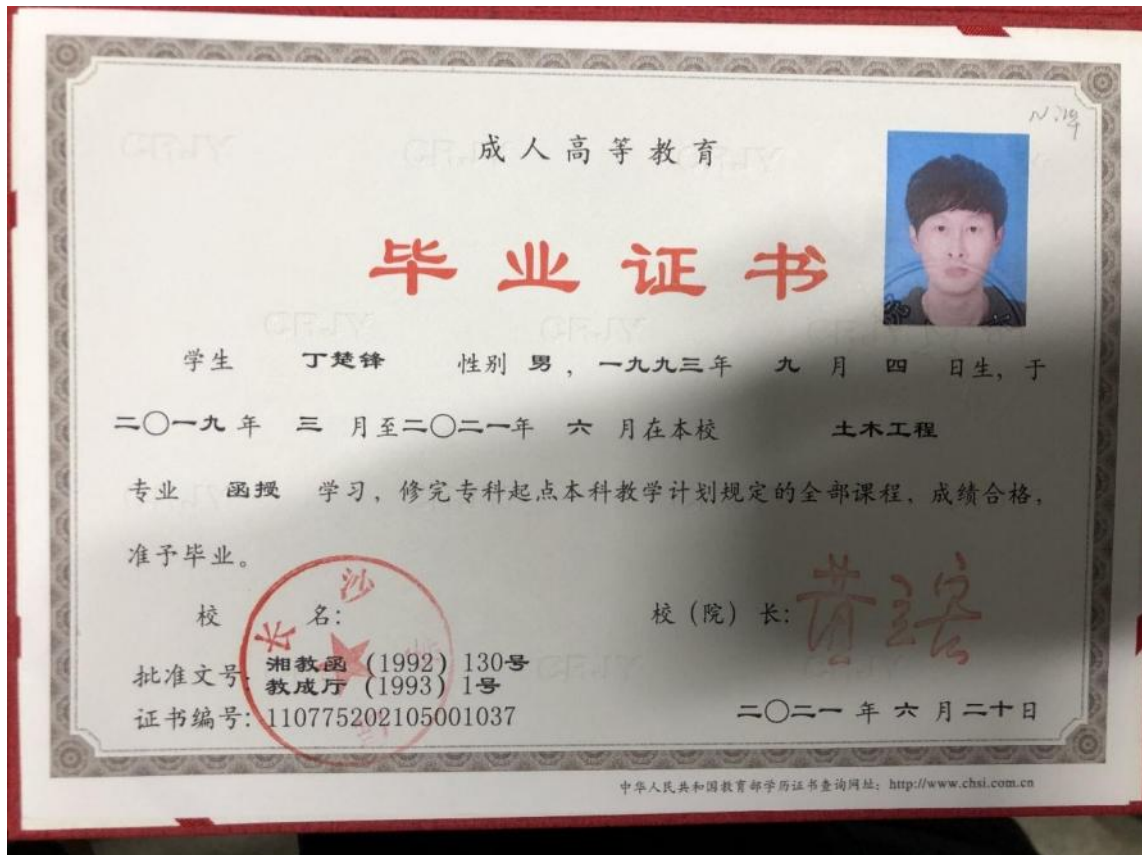 成人高等教育
毕业证书
学生 丁楚锋 性别 男，一九九三年 九 月 四 日生，于
二〇一九年 三 月至二〇二一年 六 月在本校 土木工程
专业 函授 学习，修完专科起点本科教学计划规定的全部课程，成绩合格，
准予毕业。
校 名：
校（院）长：
批准文号：湘教函（1992）130号
教成厅（1993）1号
证书编号：110775202105001037
二〇二一 年 六 月二十日
中华人民共和国教育部学历证书查询网址：http://www.chsi.com.cn
长沙